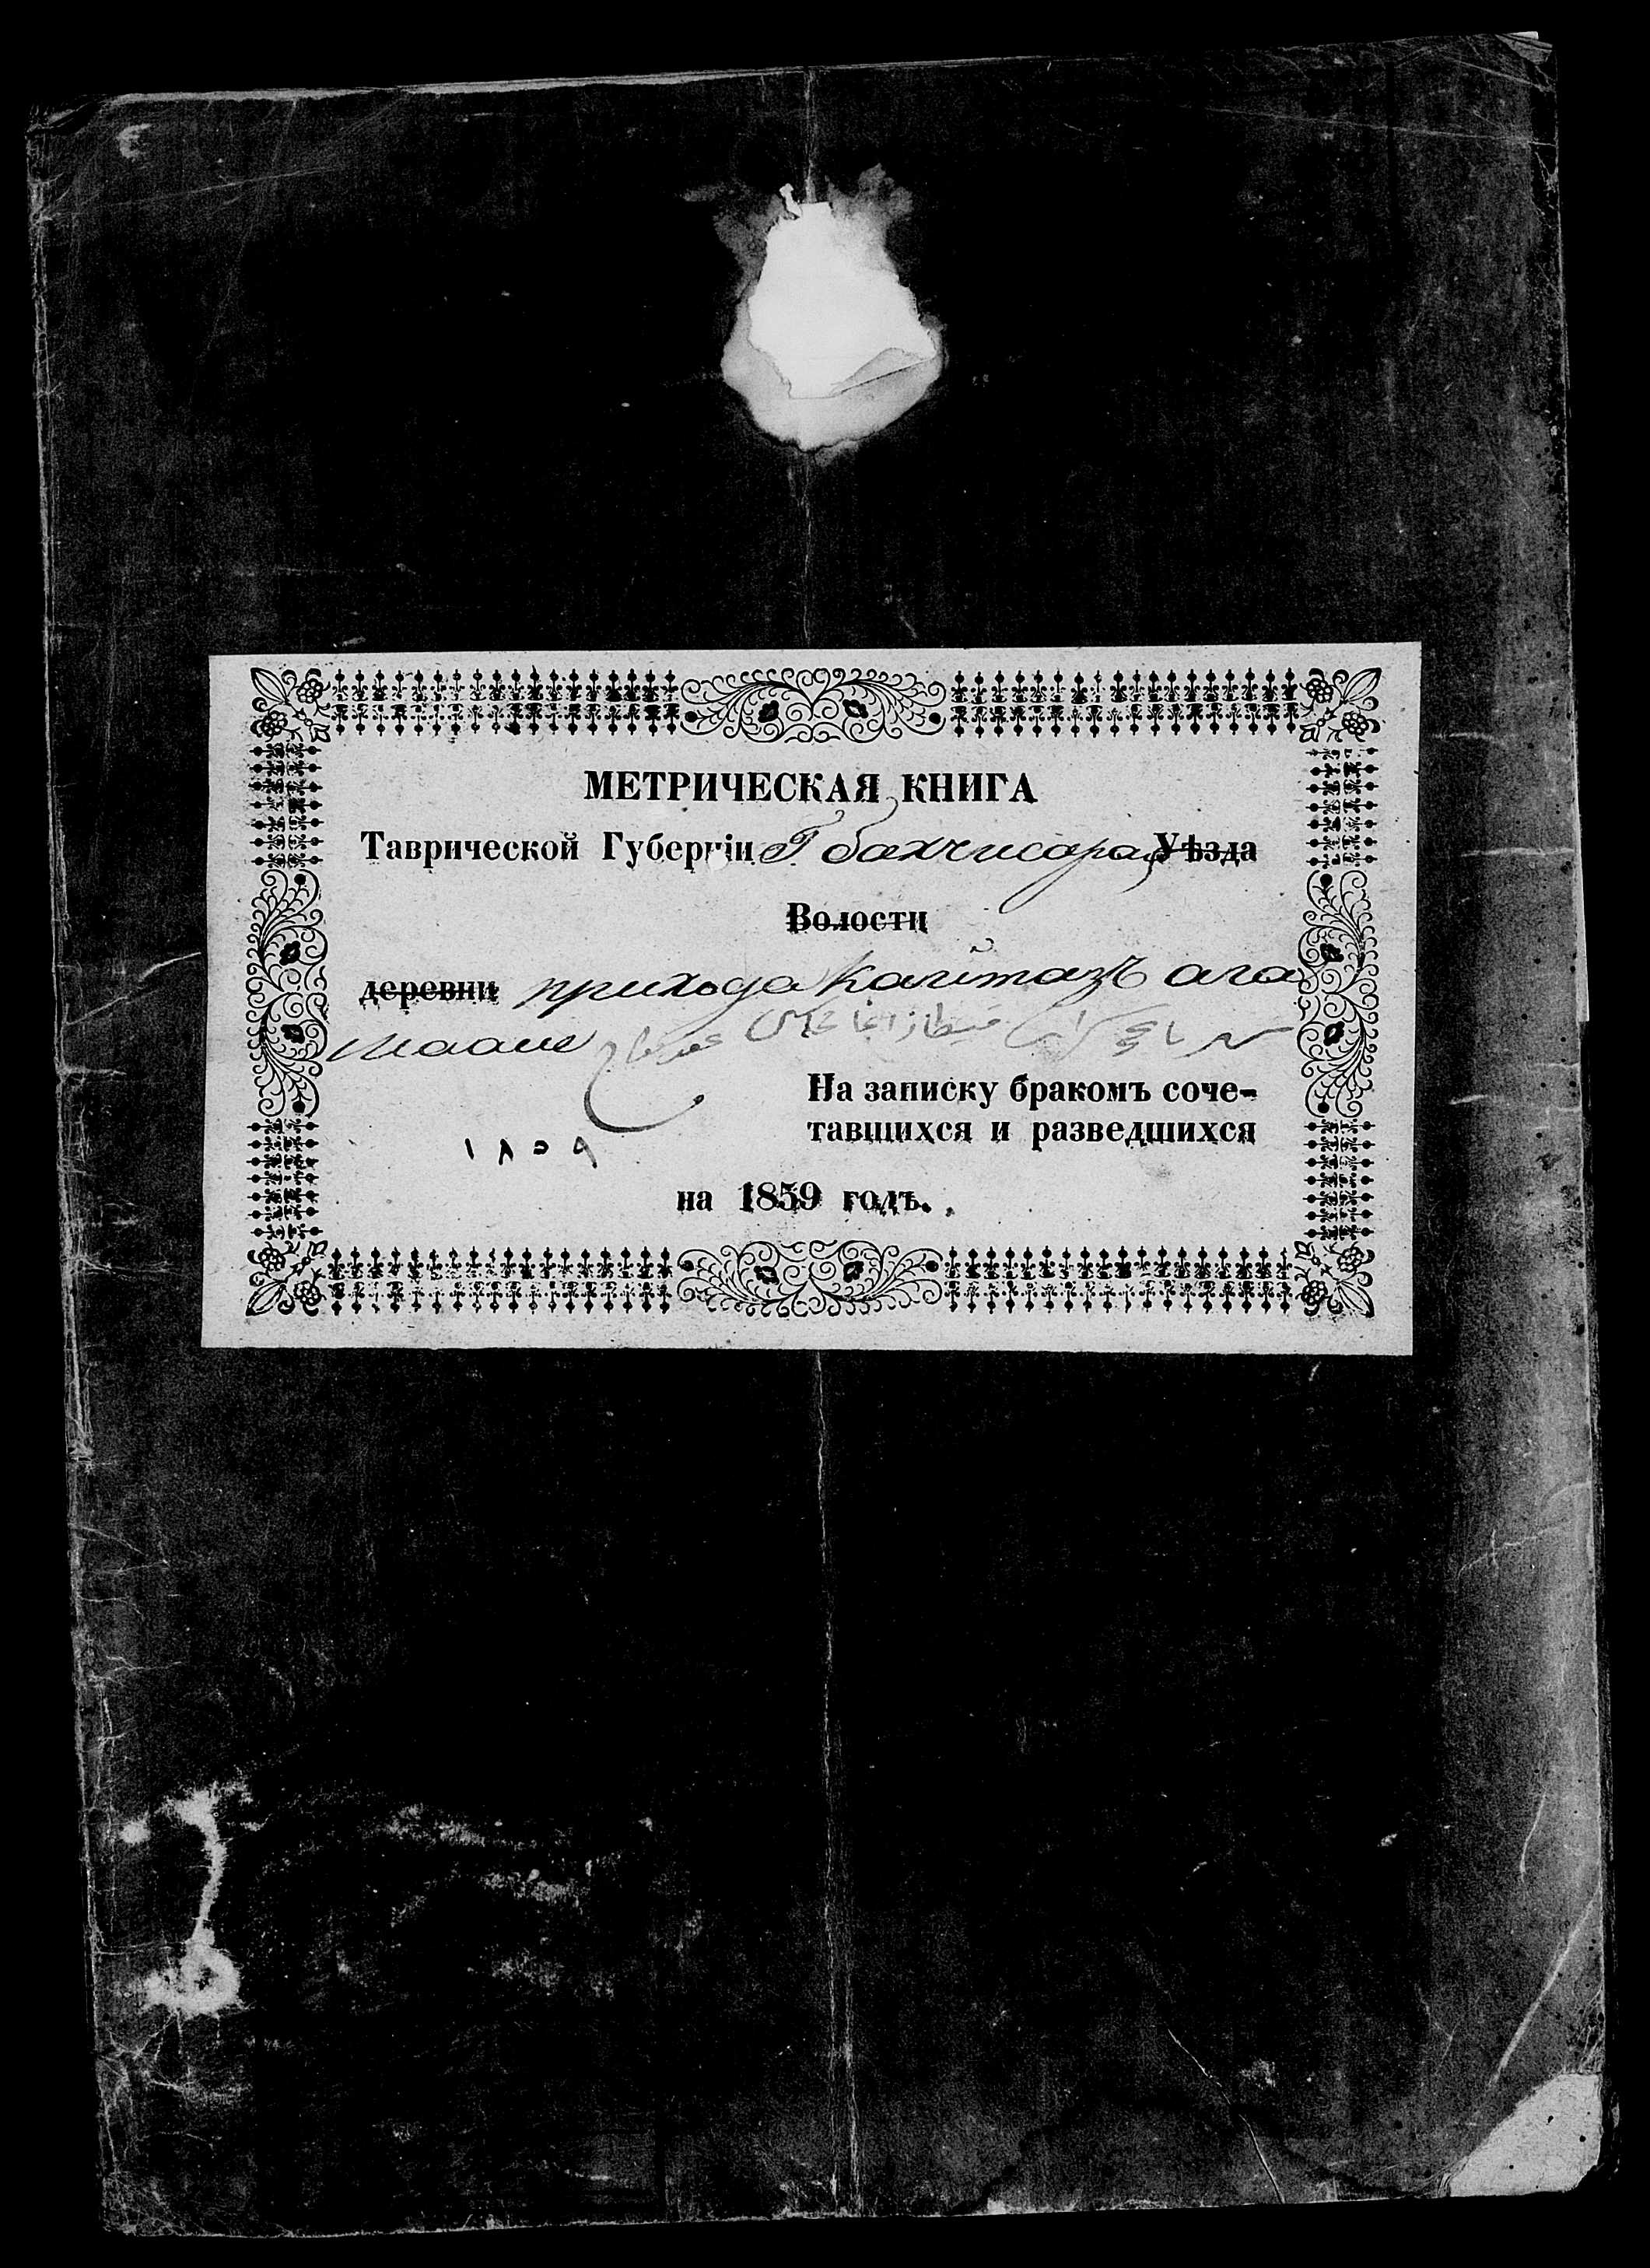 МЕТРИЧЕСКАЯ КНИГА
Таврической Губерніи Г. бахчисарая Уѣзда
Волости
деревни прихода Кайтазъ ага
قيطاز اغا
На записку бракомъ соче-
тавшихся и разведшихся
١٨٥٩
на 1859 годъ.